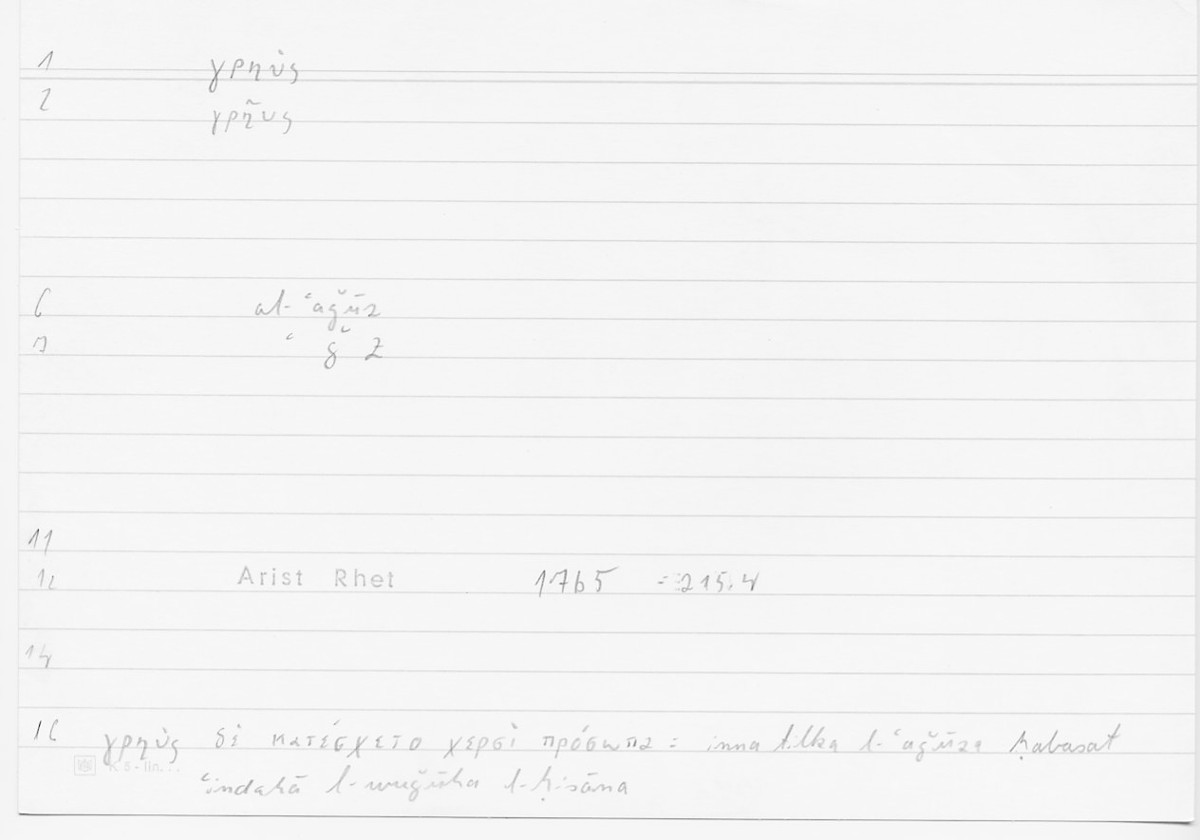 1 γρηὺς
2 γρῆυς
6 al-ʿaǧūz
7 ʿ ǧ z
11
12 Arist Rhet 1765 = 215.4
14
16 γρηὺς δὲ κατέσχετο χερσὶ πρόσωπα = inna tilka l-ʿaǧūza ḥabasat
ʿindahā l-wuǧūha l-ḥisāna